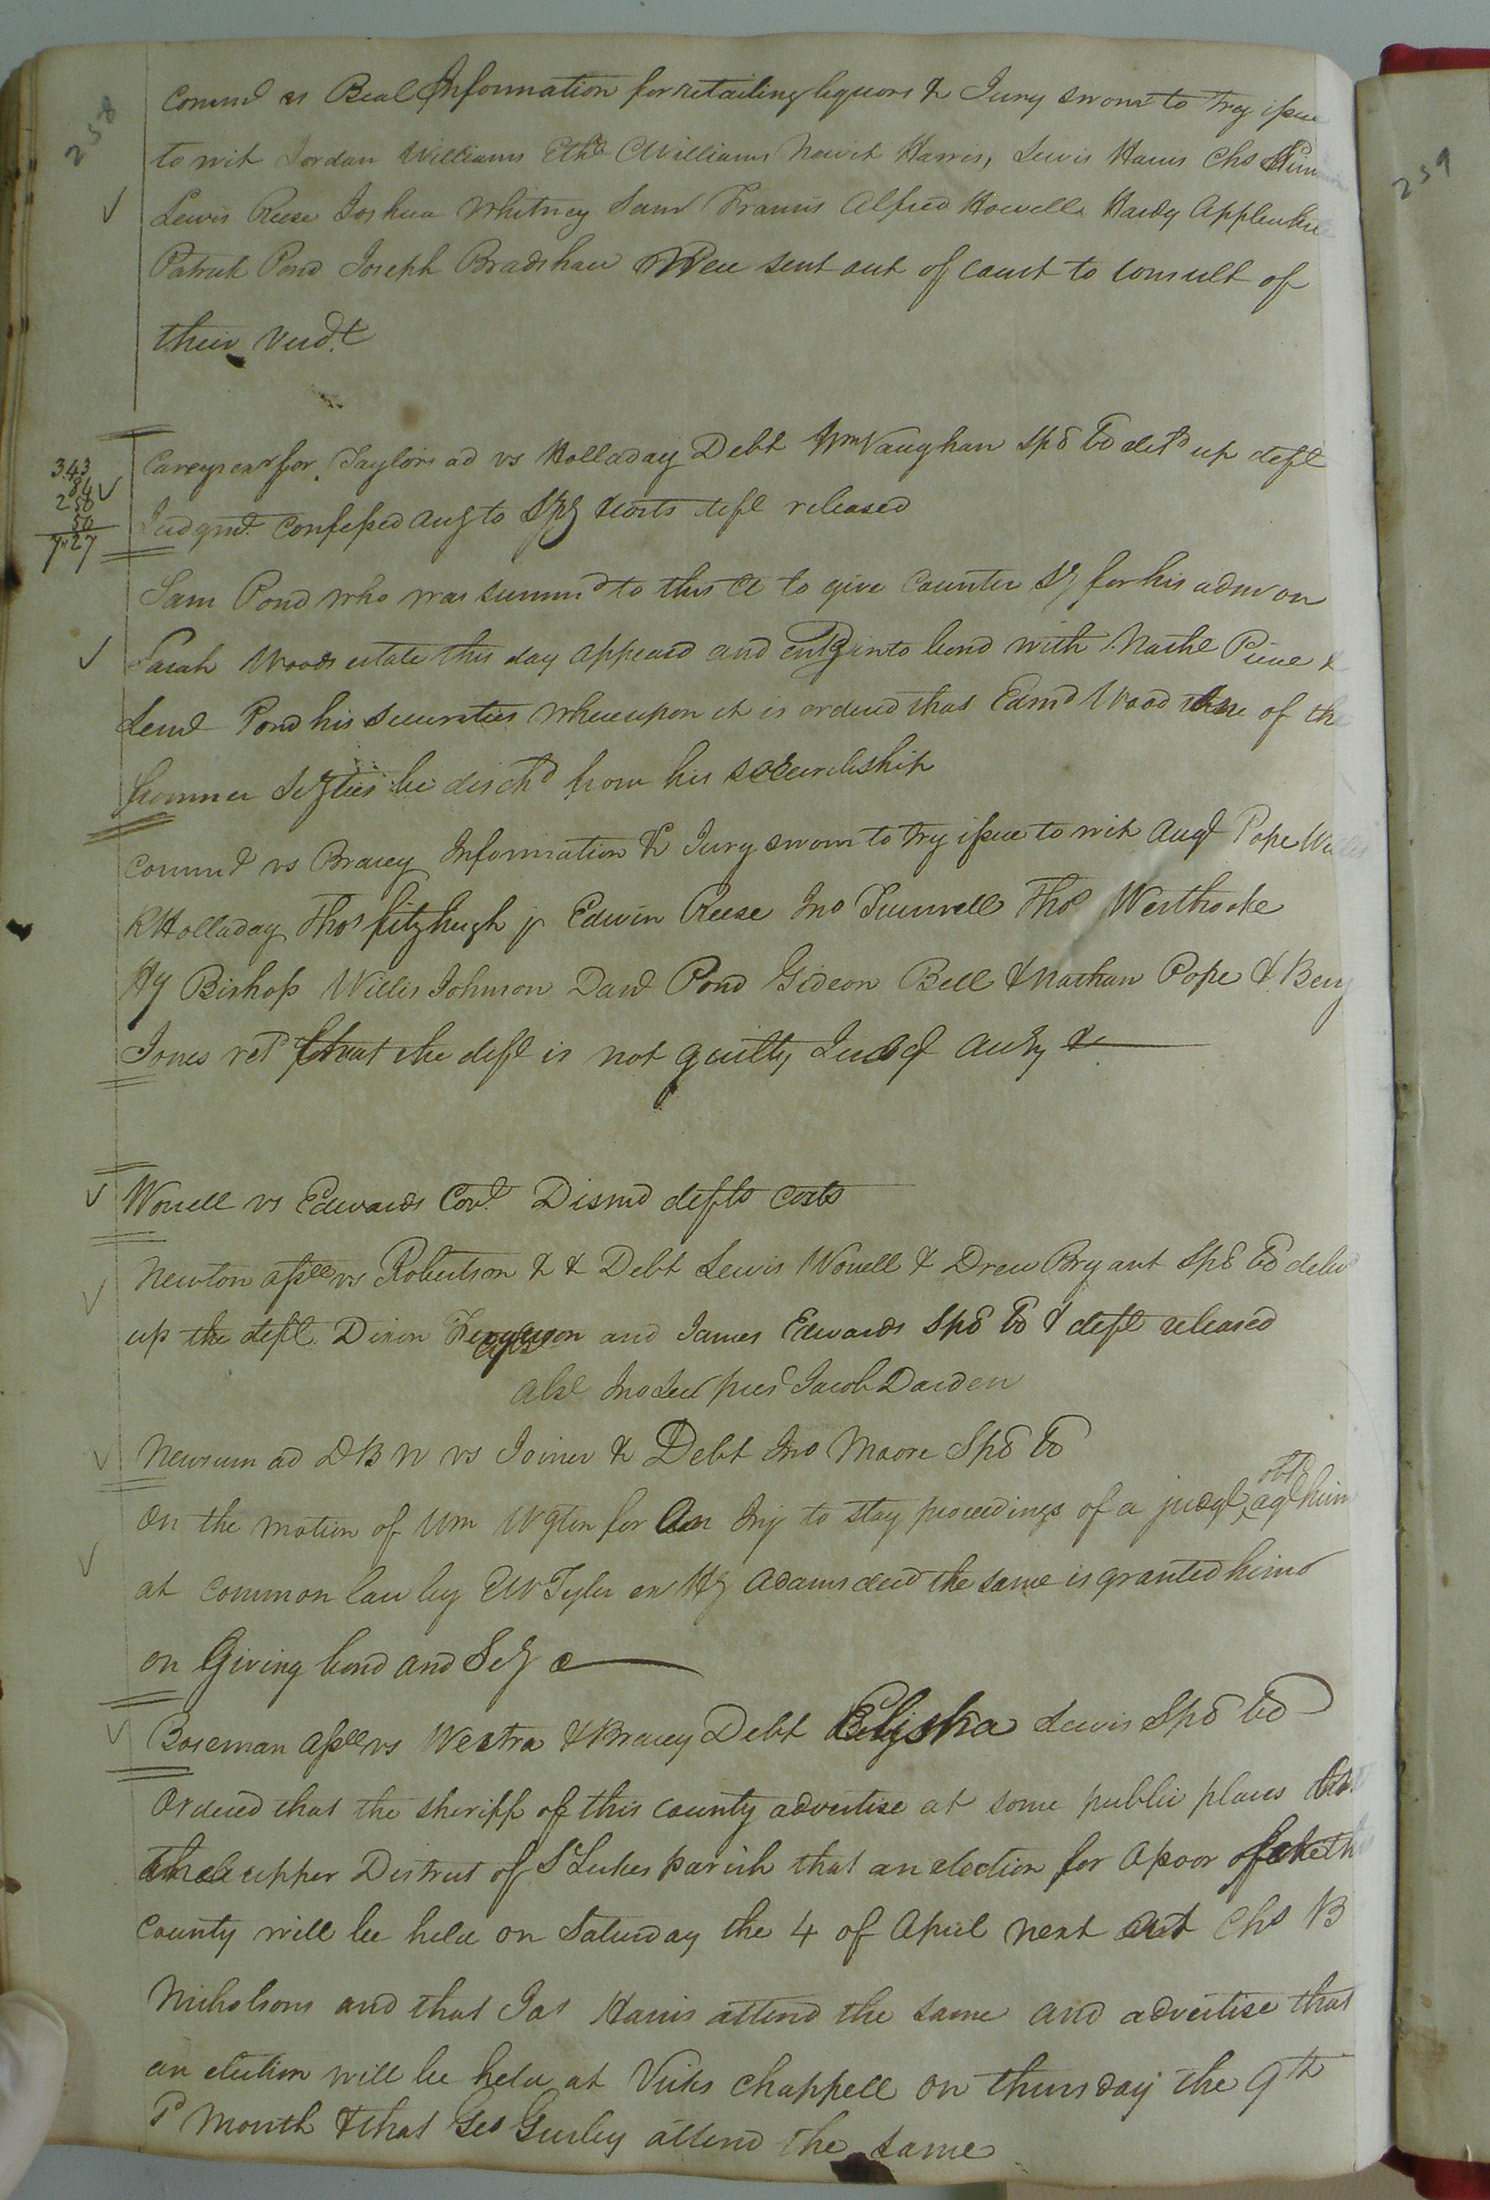 258
259
Commd vs Beal Information for retailing liquors & Jury sworn to try issue
to wit Jordan Williams Ethd Williams Newit Harris, Lewis Harris Chs
Lewis Reese Joshua Whitney Saml Francis Alfred Howell Hardy Applewhite
Patrick Pond Joseph Bradshaw Were sent out of Court to consult of
their Verdt
343
84
250
50
7.27
Careys exr for Taylors ad vs Holladay Debt Wm Vaughan Spd bd deld up deft
Judgmt confessed Aug to Spg & costs deft released
Sam Pond who was summd to this Ct to give Counter Sy for his admr on
Sarah Woods estate this day appeard and entd into bond with Nathl Pope &
Leml Pond his Securities whereupon it is ordered that Edmd Wood one of the
former Sezties be dischd from his secureship
Commd vs Bracey Information & Jury sworn to try issue to wit Augt Pope
R Holladay Thos Fitzhugh jr Edwin Reese Jno Tunnell Thos Westbrooke
Hy Bishop Willis Johnson Danl Pond Gideon Bell & Nathan Pope & Benj
Jones retd that the deft is not guilty Judgt &c
Worrell vs Edwards Covt Dismd defts costs
Newton assee vs Robertson & & Debt Lewis Worrell & Drew Bryant Spd bd deld
up the deft Dixon Ferguson and James Edwards Spd bd & deft released
Absl Jno Lee pres Jacob Darden
Newsum ad D B N vs Joiner & Debt Jno Moore Spd bd
On the motion of Wm Wgton for An Inj to stay proceedings of a judgt obtd agt him
at common law by W Tyler exr Hy Adams decd the same is granted him
on Giving bond and Sey &c
Boseman assee vs Westra & Bracey Debt Elisha Lewis Spd bd
Ordered that the sheriff of this county advertise at some public places
the upper District of St Lukes parish that an election for a poor of the
county will be held on Saturday the 4 of April next at Chs B
Nicholsons and that Jas Harris attend the same and advertise that
an election will be held at Vicks chappell on thursday the 9th
Sd Month & that Geo Gurley attend the same